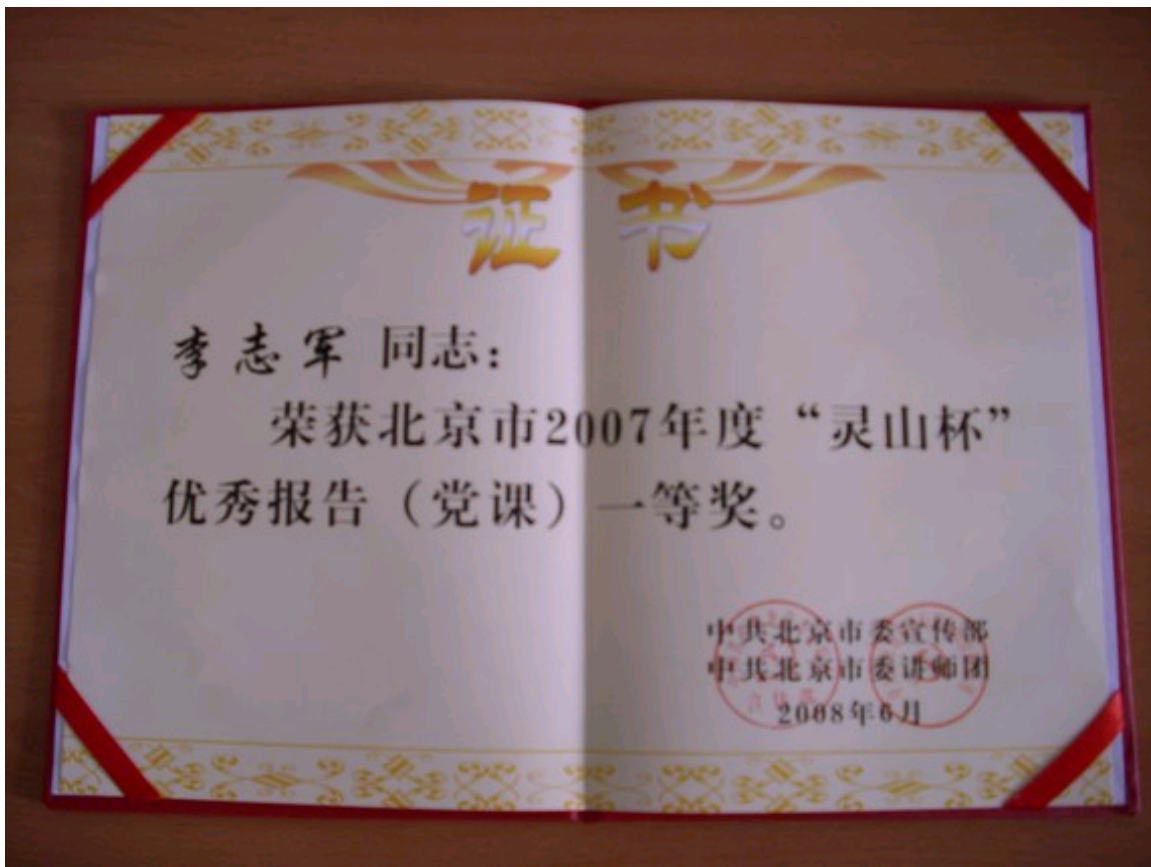 证书
李志军 同志：
荣获北京市2007年度“灵山杯”
优秀报告（党课）一等奖。
中共北京市委宣传部
中共北京市委讲师团
2008年6月